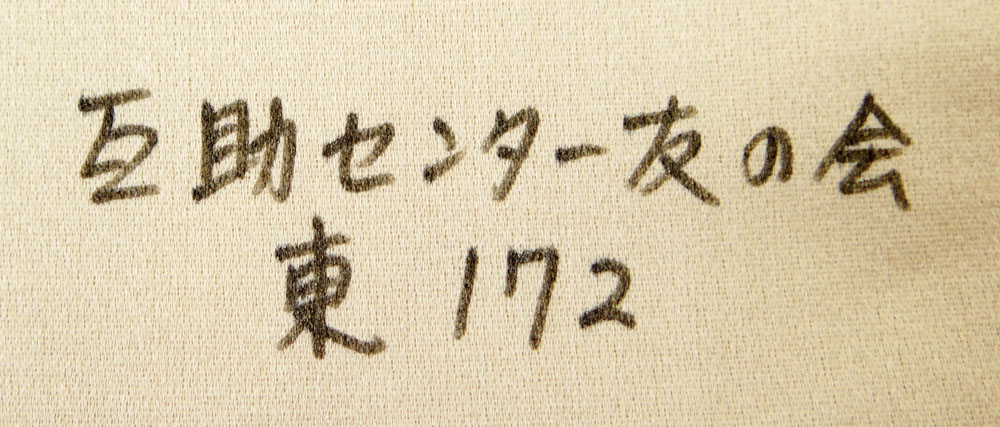 互助センター友の会
東 172